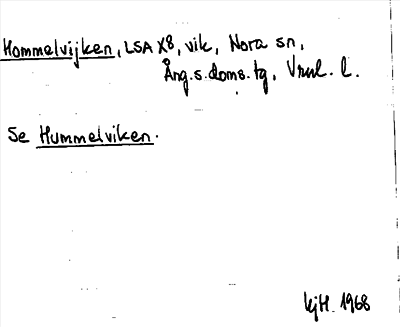 Hommelvijken, LSA X8, vik, Nora sn,
Ång.s.doms.tg, Vrnl. l.
Se Hummelviken.
kjH. 1968